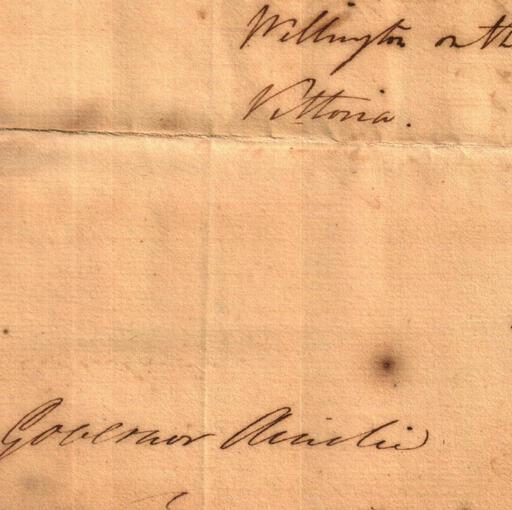 Wellington on th
Vittoria.
Governor Ainslie